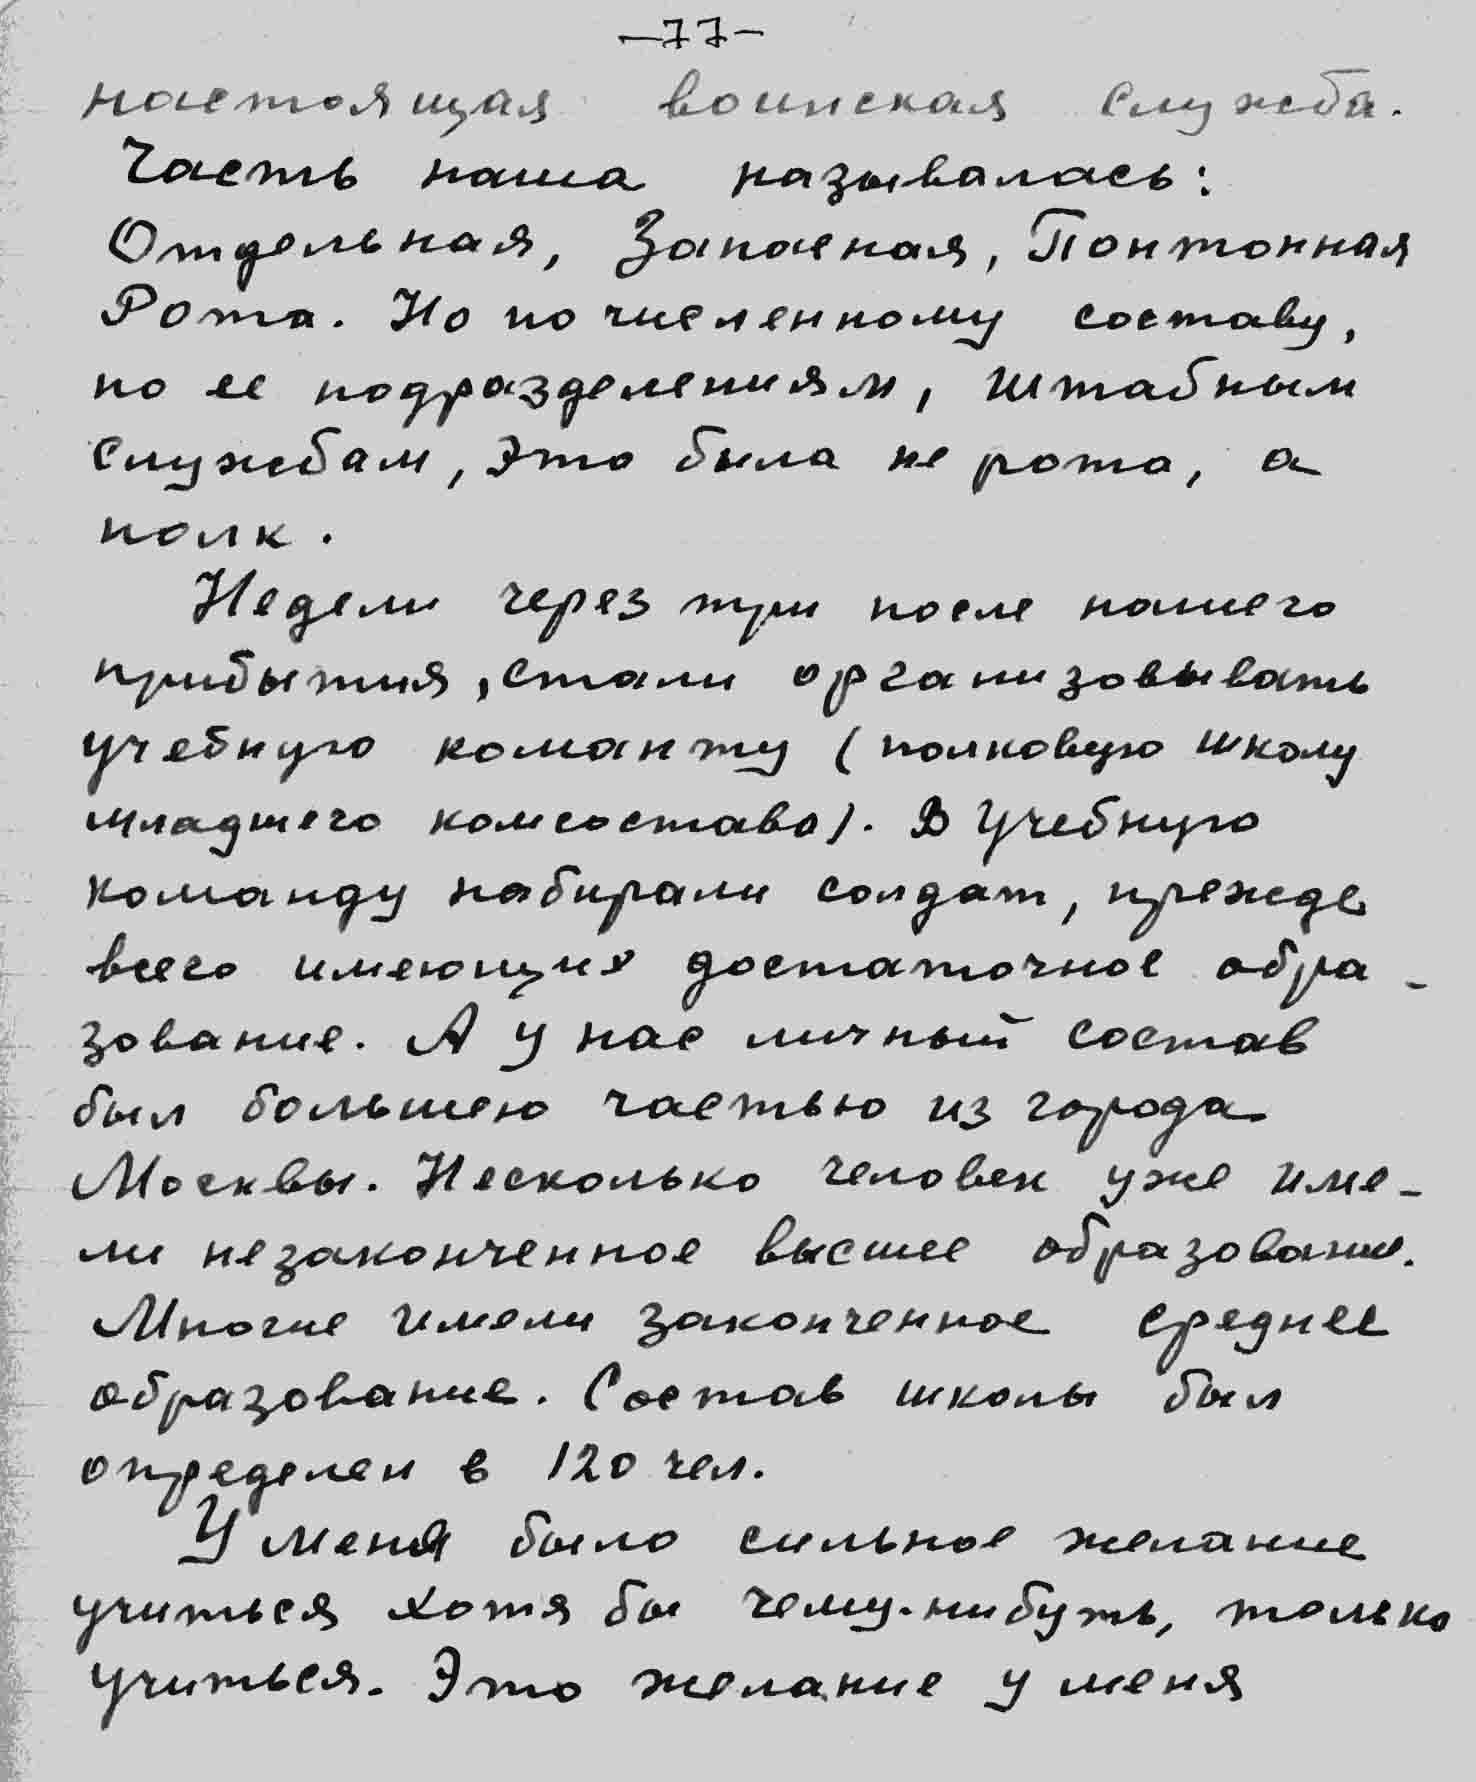 -77-
настоящая воинская служба.
Часть наша называлась:
Отдельная, Запасная, Понтонная
Рота. Но по численному составу,
по ее подразделениям, штабным
службам, это была не рота, а
полк.
Недели через три после нашего
прибытия, стали организовывать
учебную команту (полковую школу
младшего комсостава). В Учебную
команду набирали солдат, прежде
всего имеющих достаточное обра-
зование. А у нас личный состав
был большею частью из города
Москвы. Несколько человек уже име-
ли незаконченное высшее образование.
Многие имели законченное среднее
образование. Состав школы был
определен в 120 чел.
У меня было сильное желание
учиться хотя бы чему-нибуть, только
учиться. Это желание у меня